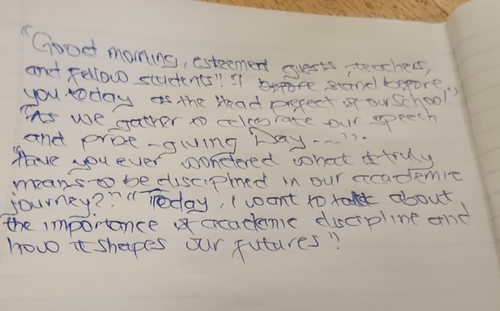 "Good morning, esteemed guests, teachers,
and fellow students". "I stand before
you today as the Head prefect of our School."
"As we gather to celebrate our speech
and prize-giving Day...".
"Have you ever wondered what it truly
means to be disciplined in our academic
journey?? "Today, I want to talk about
the importance of academic discipline and
how it shapes our futures"!